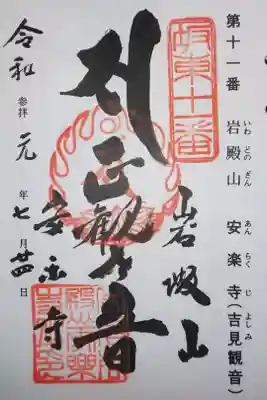 第十一番 岩殿山 安楽寺(吉見観音)
いわどのざん あんらくじ よしみ
坂東十一番
岩殿山
正観世音
安楽寺
令和元年七月廿四日
参拝